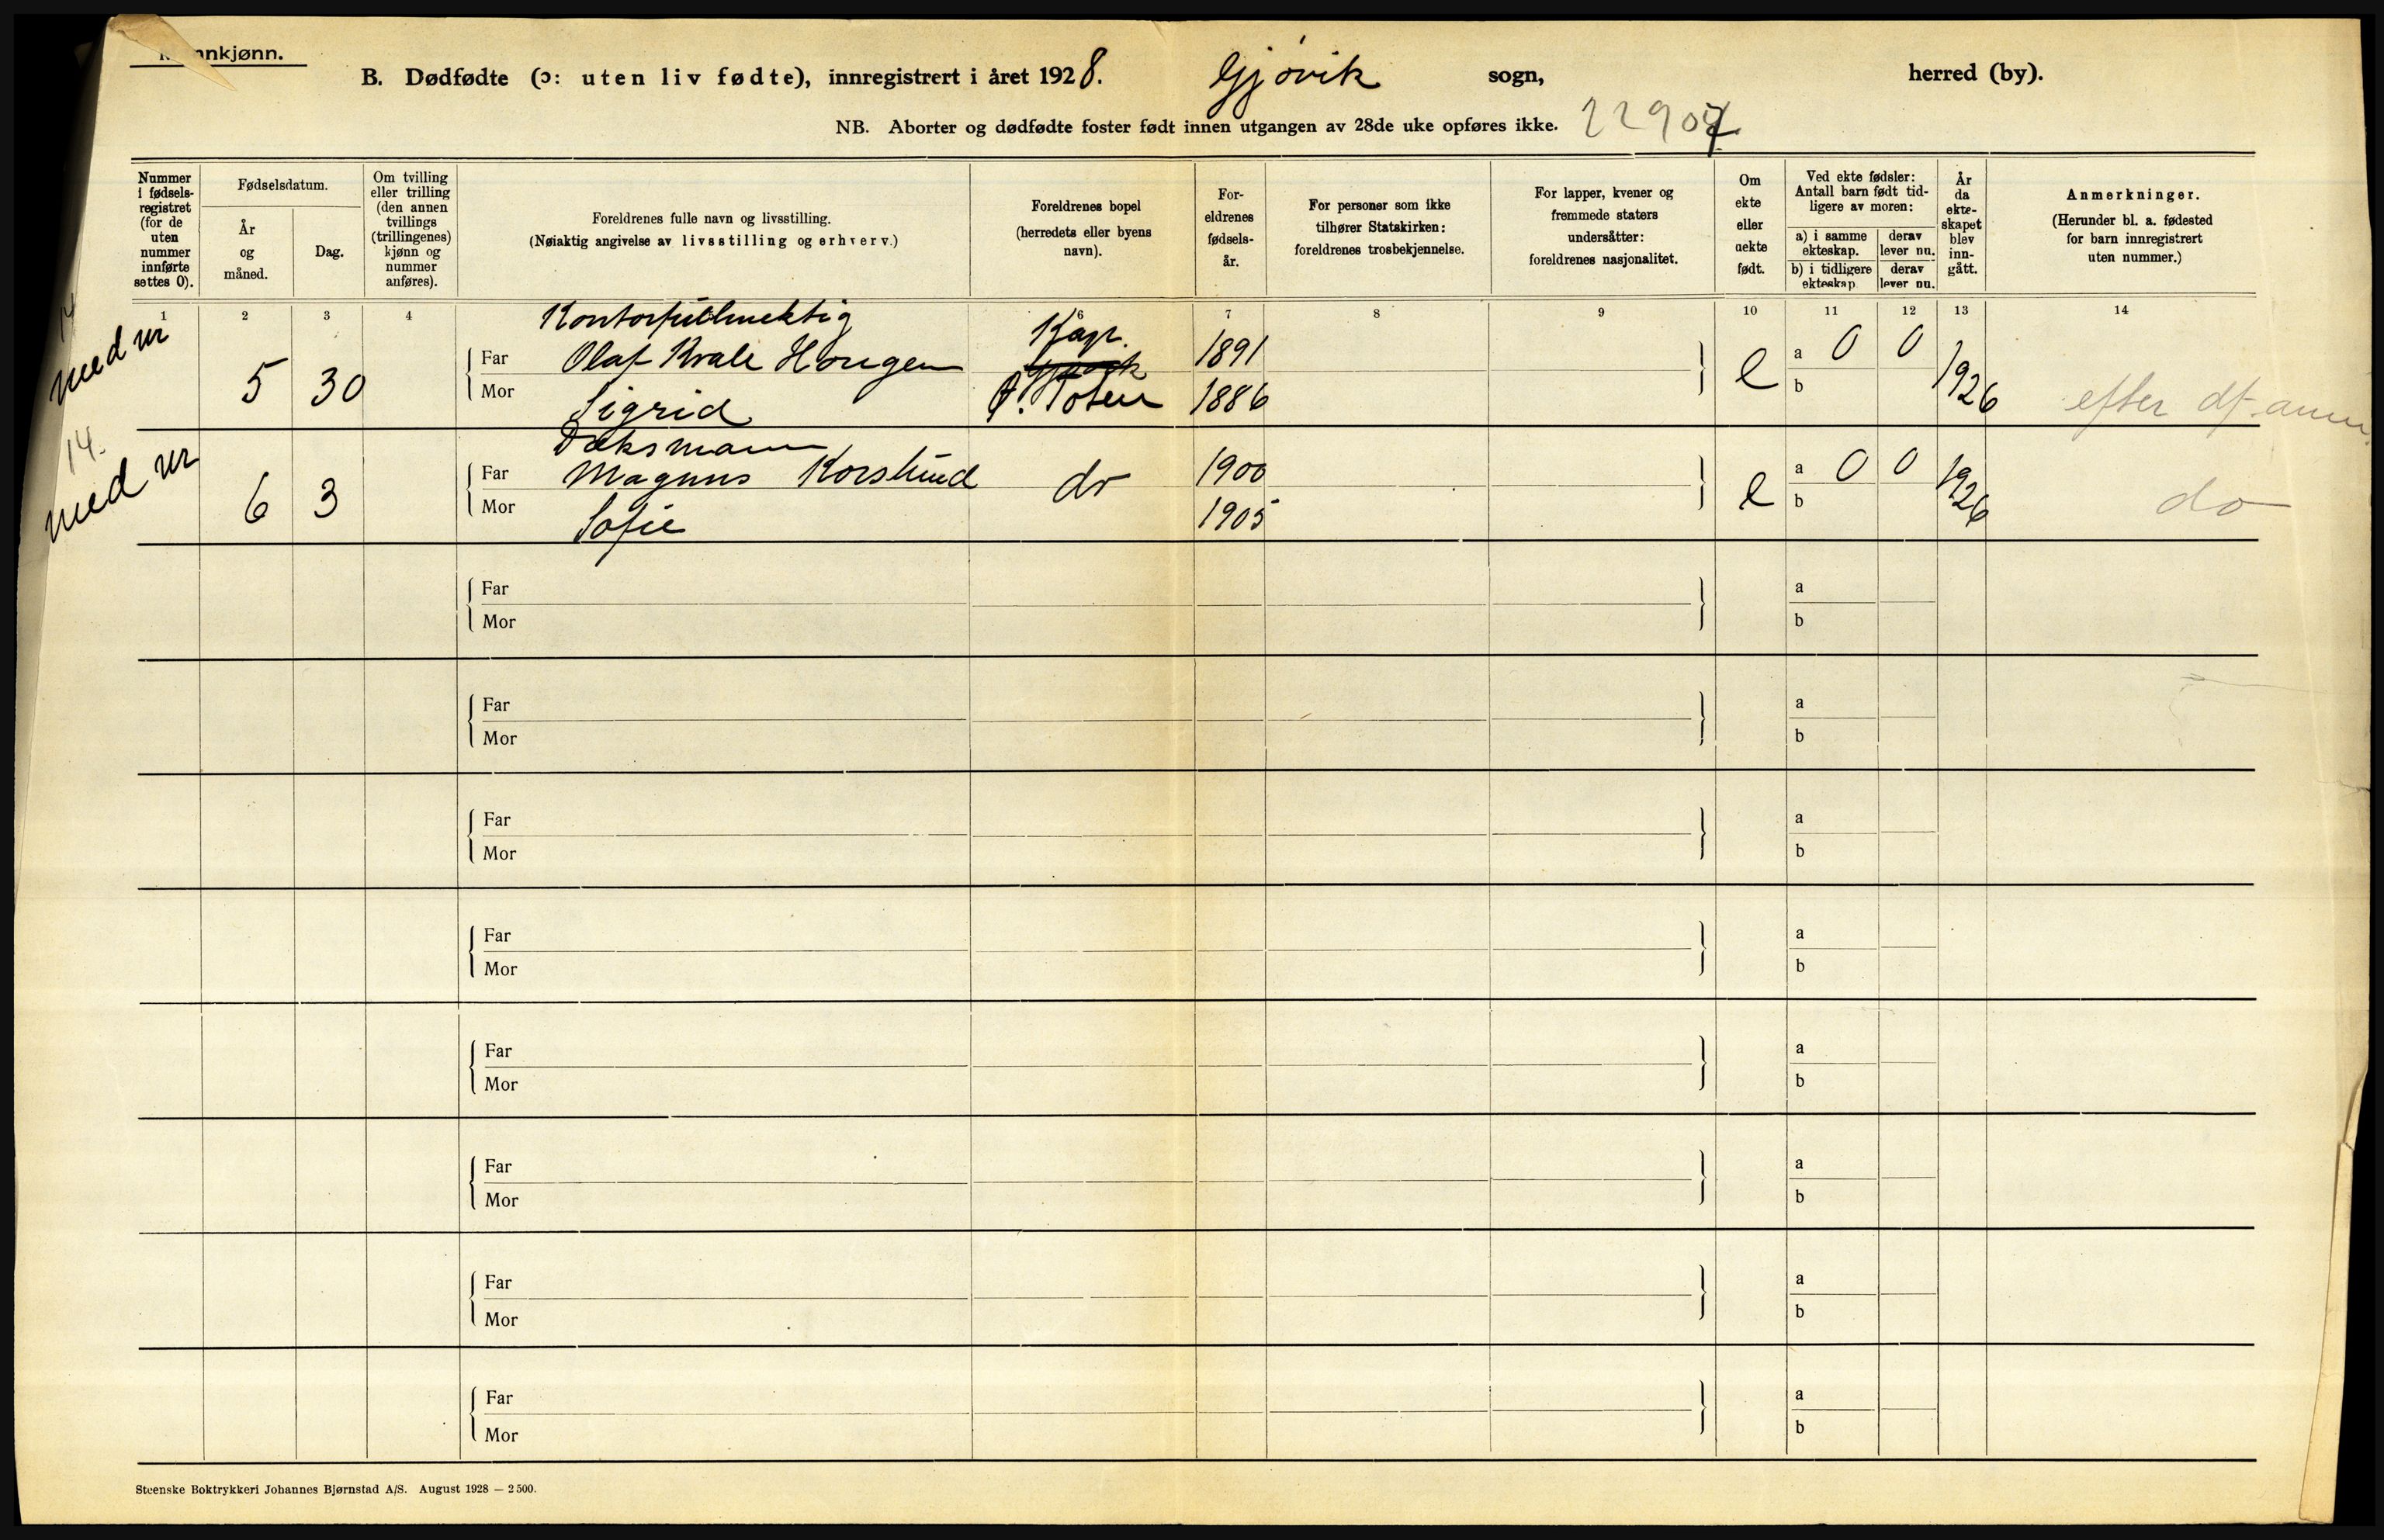 nnkjønn.
B. Dødfødte (ɔ: uten liv fødte), innregistrert i året 1928. Gjøvik sogn, herred (by).
NB. Aborter og dødfødte foster født innen utgangen av 28de uke opføres ikke. 22907
Nummer
i fødsels-
registret
(for de
uten
nummer
innførte
settes 0).
Fødselsdatum.
År
og
måned.
Dag.
Om tvilling
eller trilling
(den annen
tvillings
(trillingenes)
kjønn og
nummer
anføres).
Foreldrenes fulle navn og livsstilling.
(Nøiaktig angivelse av livsstilling og erhverv.)
Foreldrenes bopel
(herredets eller byens
navn).
For-
eldrenes
fødsels-
år.
For personer som ikke
tilhører Statskirken:
foreldrenes trosbekjennelse.
For lapper, kvener og
fremmede staters
undersåtter:
foreldrenes nasjonalitet.
Om
ekte
eller
uekte
født.
Ved ekte fødsler:
Antall barn født tid-
ligere av moren:
a) i samme
ekteskap.
derav
lever nu.
b) i tidligere
ekteskap
derav
lever nu.
År
da
ekte-
skapet
blev
inn-
gått.
Anmerkninger.
(Herunder bl. a. fødested
for barn innregistrert
uten nummer.)
1 2 3 4 6 7 8 9 10 11 12 13 14
14
med nr
5 30
Kontorfullmektig
Far Olaf Kvale Hougen
Mor Sigrid
Kapr.
Gjøvik
Ø. Toten
1891
1886
e
a 0 0
b
1926
efter df-anm.
14.
med nr
6 3
Far Magnus Korslund
Mor Sofie
do
1900
1905
e
a 0 0
b
1926
do
Far a
Mor b
Far a
Mor b
Far a
Mor b
Far a
Mor b
Far a
Mor b
Far a
Mor b
Far a
Mor b
Far a
Mor b
Steenske Boktrykkeri Johannes Bjørnstad A/S. August 1928 — 2500.